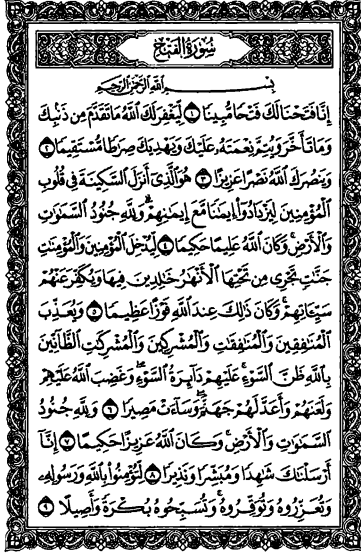 سُورَةُ الفَتْحِ
بِسْمِ ٱللَّهِ ٱلرَّحْمَٰنِ ٱلرَّحِيمِ
إِنَّا فَتَحْنَا لَكَ فَتْحًا مُّبِينًا ۝١ لِّيَغْفِرَ لَكَ ٱللَّهُ مَا تَقَدَّمَ مِن ذَنۢبِكَ
وَمَا تَأَخَّرَ وَيُتِمَّ نِعْمَتَهُۥ عَلَيْكَ وَيَهْدِيَكَ صِرَٰطًا مُّسْتَقِيمًا ۝٢
وَيَنصُرَكَ ٱللَّهُ نَصْرًا عَزِيزًا ۝٣ هُوَ ٱلَّذِىٓ أَنزَلَ ٱلسَّكِينَةَ فِى قُلُوبِ
ٱلْمُؤْمِنِينَ لِيَزْدَادُوٓا۟ إِيمَٰنًا مَّعَ إِيمَٰنِهِمْ ۗ وَلِلَّهِ جُنُودُ ٱلسَّمَٰوَٰتِ
وَٱلْأَرْضِ ۚ وَكَانَ ٱللَّهُ عَلِيمًا حَكِيمًا ۝٤ لِّيُدْخِلَ ٱلْمُؤْمِنِينَ وَٱلْمُؤْمِنَٰتِ
جَنَّٰتٍ تَجْرِى مِن تَحْتِهَا ٱلْأَنْهَٰرُ خَٰلِدِينَ فِيهَا وَيُكَفِّرَ عَنْهُمْ
سَيِّـَٔاتِهِمْ ۚ وَكَانَ ذَٰلِكَ عِندَ ٱللَّهِ فَوْزًا عَظِيمًا ۝٥ وَيُعَذِّبَ
ٱلْمُنَٰفِقِينَ وَٱلْمُنَٰفِقَٰتِ وَٱلْمُشْرِكِينَ وَٱلْمُشْرِكَٰتِ ٱلظَّآنِّينَ
بِٱللَّهِ ظَنَّ ٱلسَّوْءِ ۚ عَلَيْهِمْ دَآئِرَةُ ٱلسَّوْءِ ۖ وَغَضِبَ ٱللَّهُ عَلَيْهِمْ
وَلَعَنَهُمْ وَأَعَدَّ لَهُمْ جَهَنَّمَ ۖ وَسَآءَتْ مَصِيرًا ۝٦ وَلِلَّهِ جُنُودُ
ٱلسَّمَٰوَٰتِ وَٱلْأَرْضِ ۚ وَكَانَ ٱللَّهُ عَزِيزًا حَكِيمًا ۝٧ إِنَّآ
أَرْسَلْنَٰكَ شَٰهِدًا وَمُبَشِّرًا وَنَذِيرًا ۝٨ لِّتُؤْمِنُوا۟ بِٱللَّهِ وَرَسُولِهِۦ
وَتُعَزِّرُوهُ وَتُوَقِّرُوهُ ۚ وَتُسَبِّحُوهُ بُكْرَةً وَأَصِيلًا ۝٩